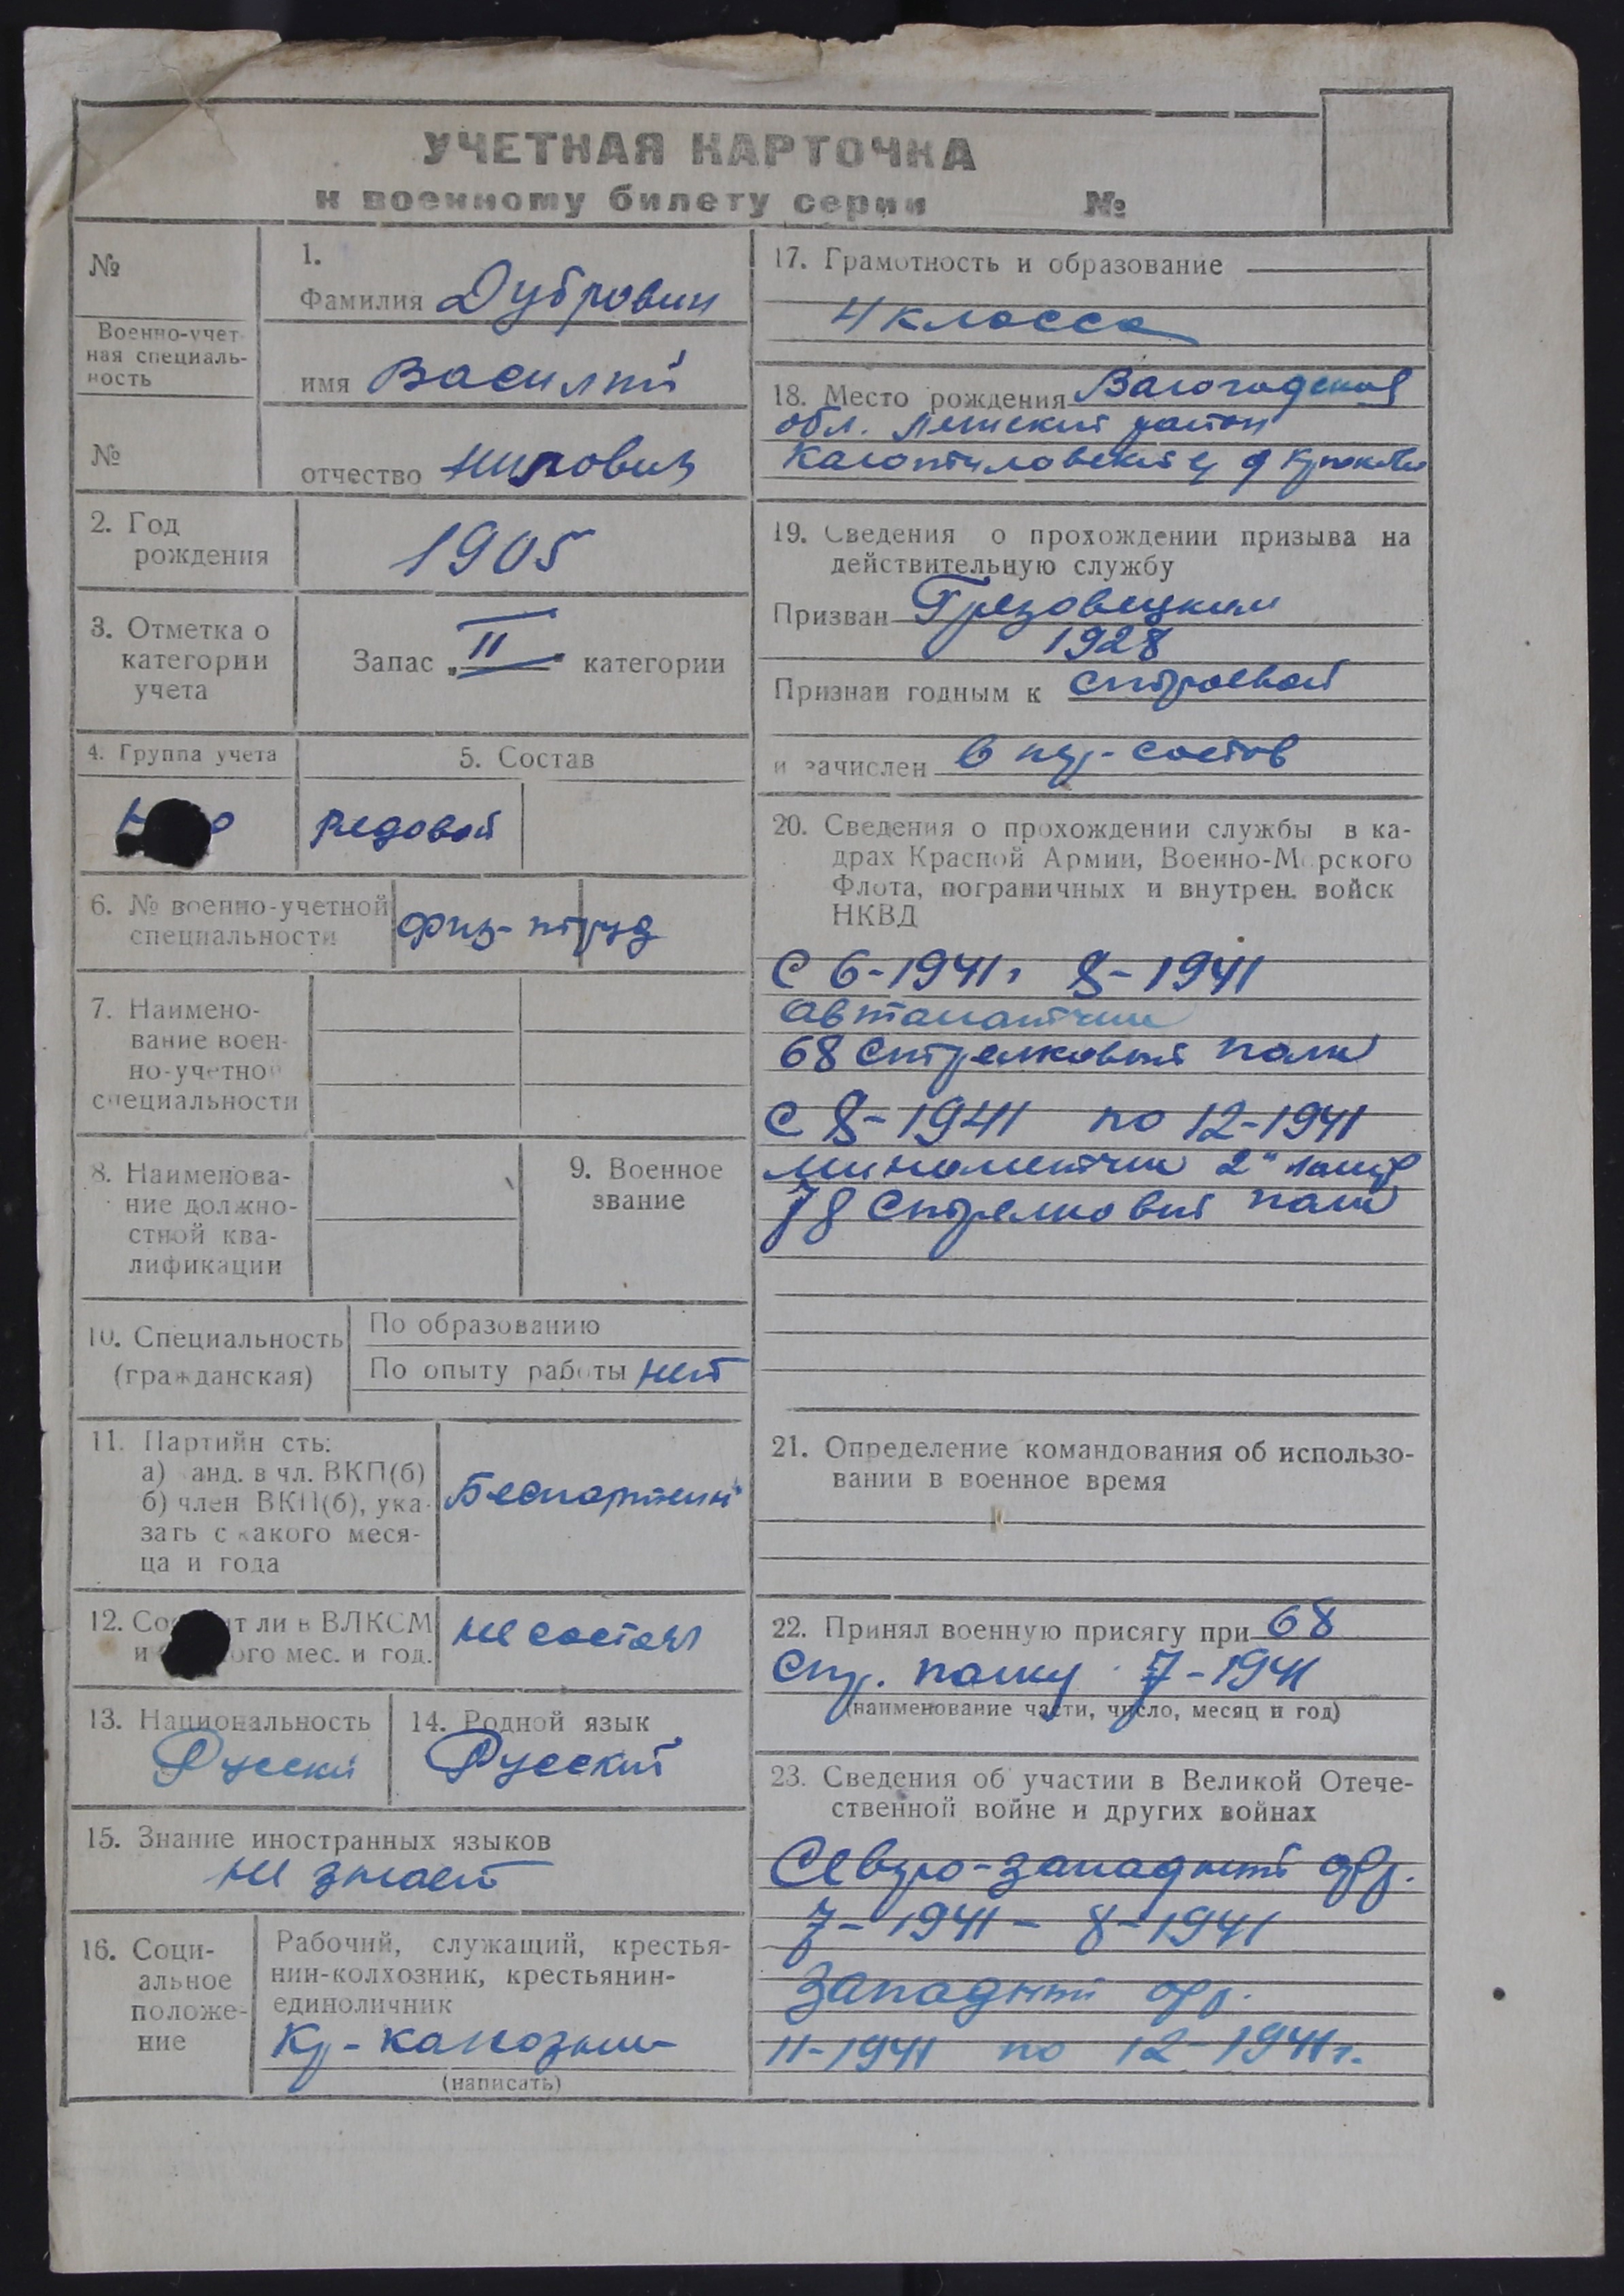 УЧЕТНАЯ КАРТОЧКА
к военному билету серии №
№
Военно-учет-
ная специаль-
ность
№
1.
Фамилия Дубровин
имя Василий
отчество Нилович
2. Год
рождения
1905
3. Отметка о
категории
учета
Запас „II“ категории
4. Группа учета
5. Состав
Рядовой
6. № военно-учетной
специальности
физ-труд
7. Наимено-
вание воен-
но-учетной
специальности
8. Наименова-
ние должно-
стной ква-
лификации
9. Военное
звание
10. Специальность
(гражданская)
По образованию
По опыту работы нет
11. Партийн сть:
а) анд. в чл. ВКП(б)
б) член ВКП(б), ука-
зать с какого меся-
ца и года
Беспартеин
12. Со т ли в ВЛКСМ
и ого мес. и год.
не состоял
13. Национальность
Руский
14. Родной язык
Русский
15. Знание иностранных языков
не знает
16. Соци-
альное
положе-
ние
Рабочий, служащий, крестья-
нин-колхозник, крестьянин-
единоличник
Кр-калхозник
(написать)
17. Грамотность и образование
4 класса
18. Место рождения Валогодская
обл. Лежский район
19. Сведения о прохождении призыва на
действительную службу
Призван Грязовецким
1928
Признан годным к строевой
и зачислен в пер. состав
20. Сведения о прохождении службы в ка-
драх Красной Армии, Военно-Морского
Флота, пограничных и внутрен. войск
НКВД
С 6-1941г 8-1941
автаматчик
68 Стрелковый полк
С 8-1941 по 12-1941
минометчик 2й
78 Стрелковый полк
21. Определение командования об использо-
вании в военное время
22. Принял военную присягу при 68
Стр. полку 7-1941
(наименование части, число, месяц и год)
23. Сведения об участии в Великой Отече-
ственной войне и других войнах
Северо-западный фр.
7-1941 - 8-1941
Западный фр.
11-1941 по 12-1941г.